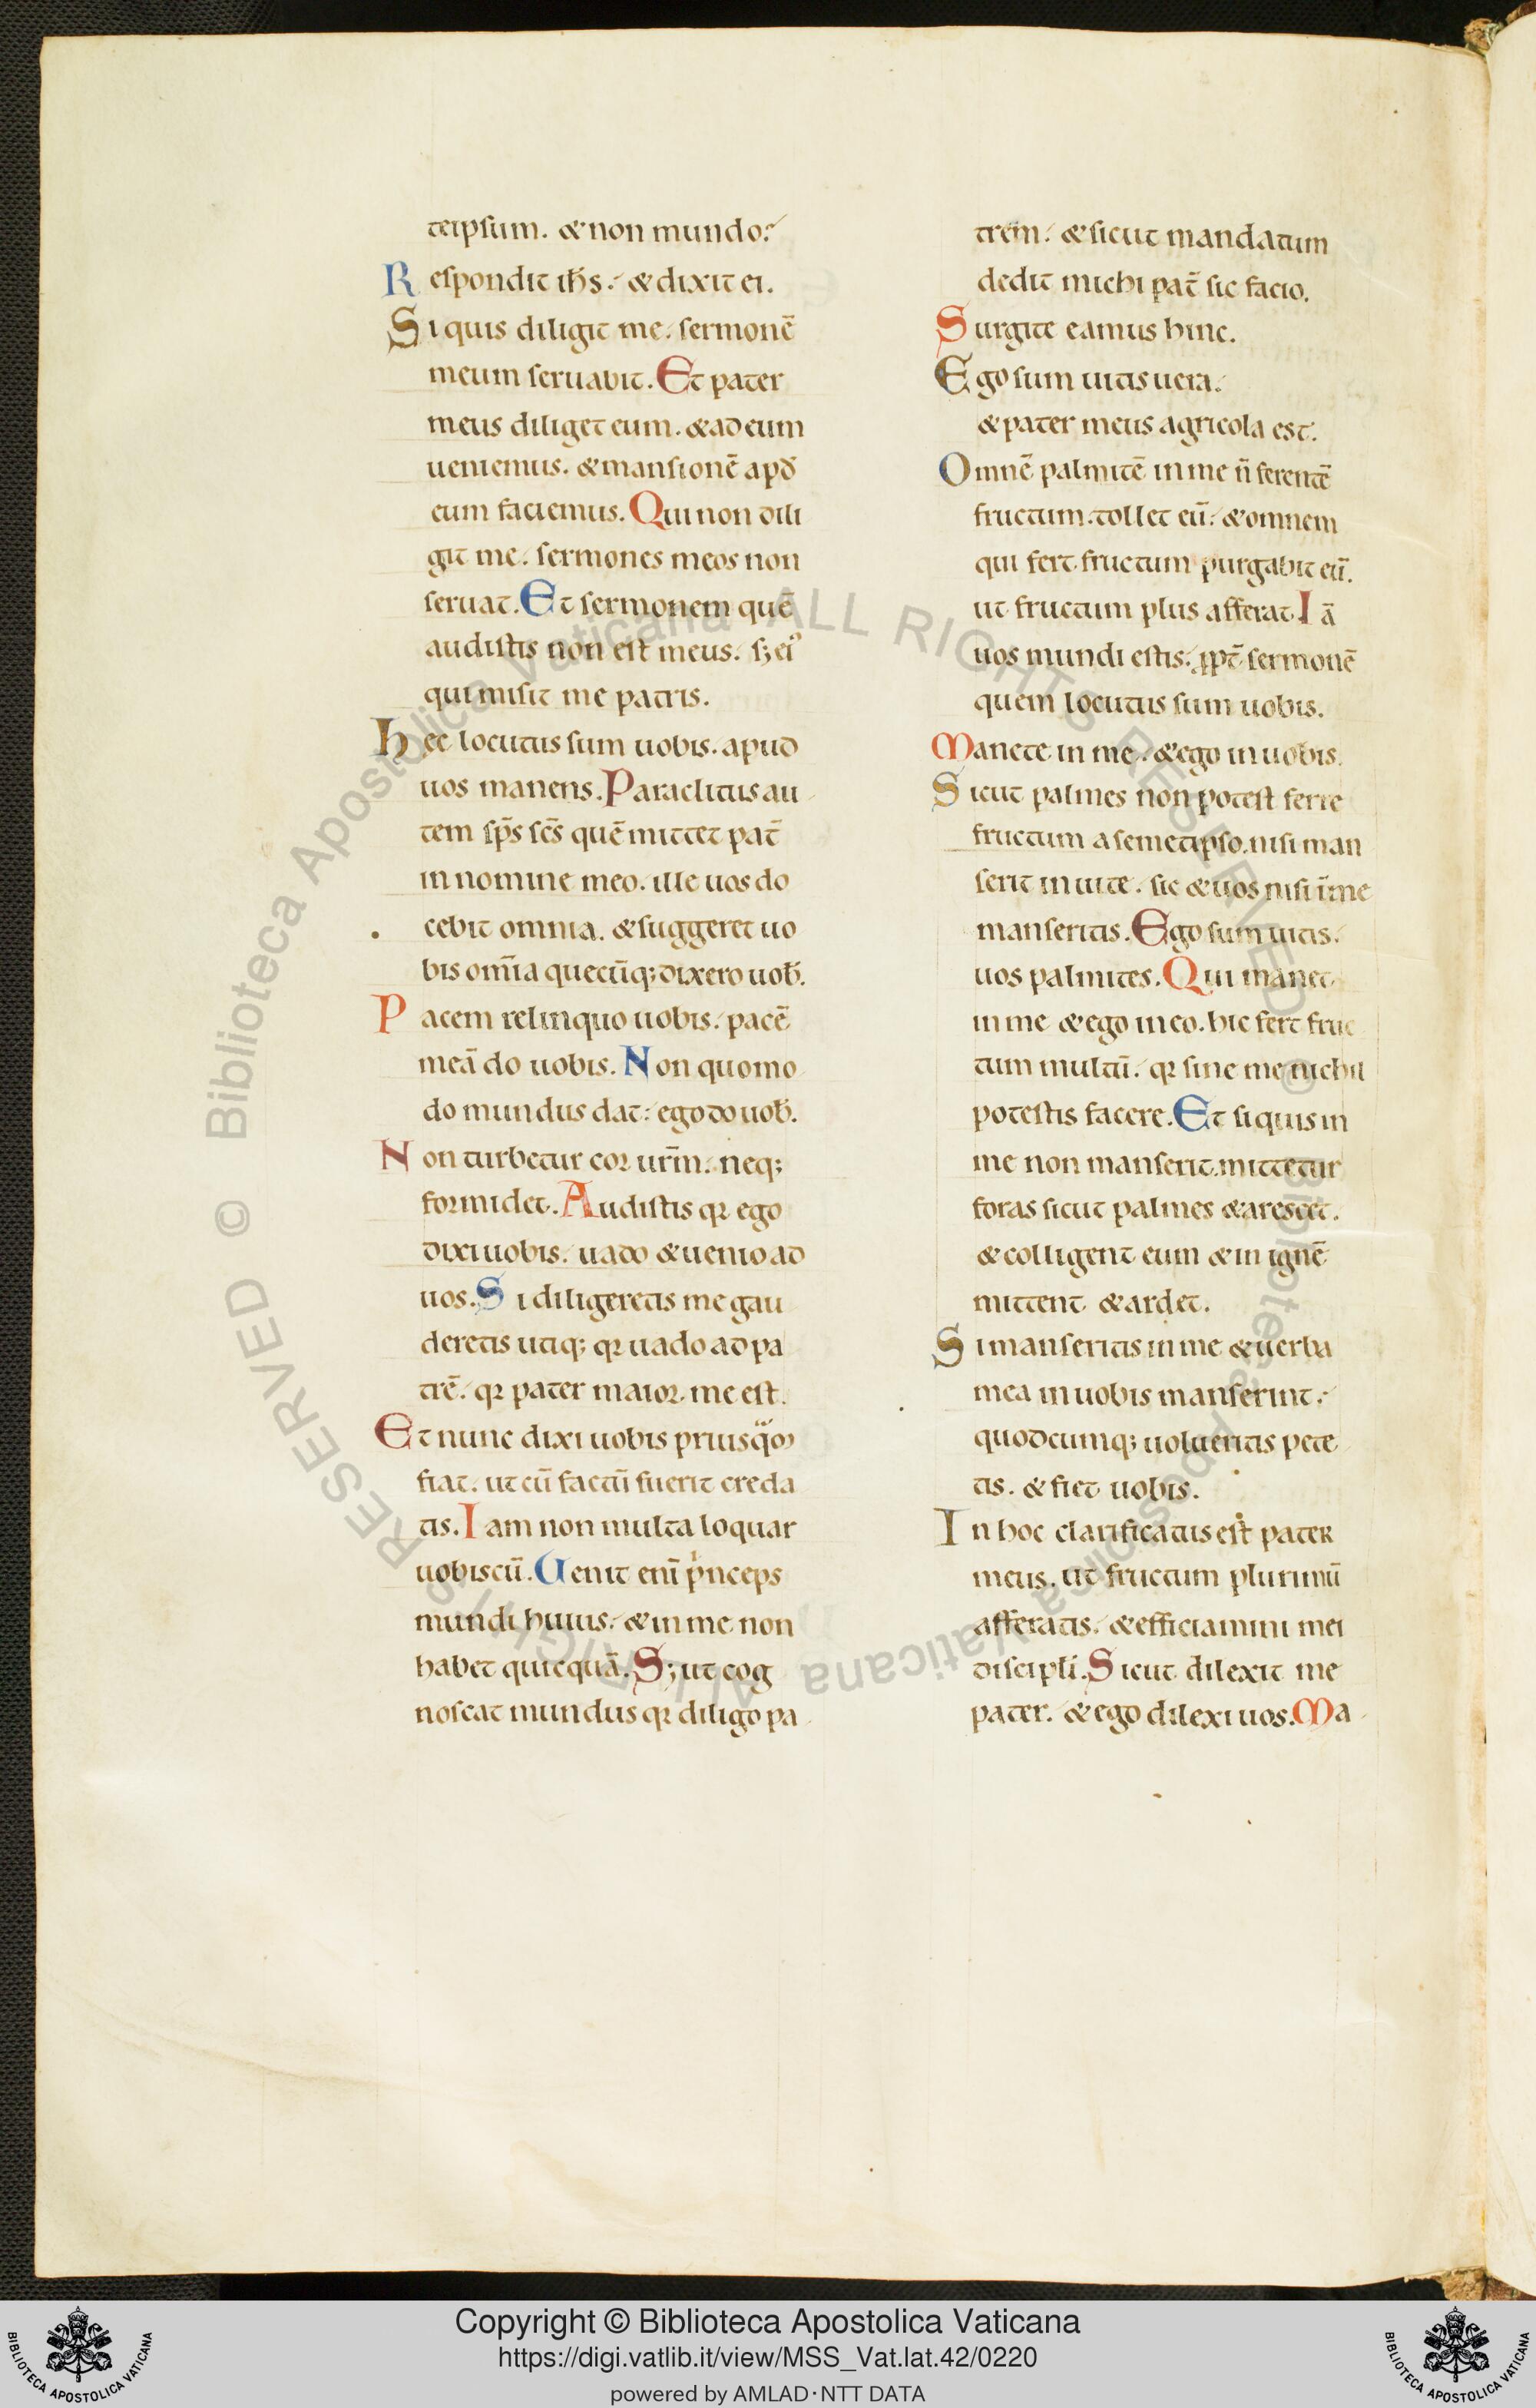 teipsum. & non mundo?
Respondit ih̅s. & dixit ei.
Si quis diligit me. sermonē
meum seruabit. Et pater
meus diliget eum. & ad eum
ueniemus. & mansionē apđ
eum faciemus. Qui non dili
git me. sermones meos non
seruat. Et sermonem quē
audistis non est meus. sꝫ eiꝰ
qui misit me patris.
Hec locutus sum uobis. apud
uos manens. Paraclitus au
tem sp̅s sc̅s quē mittet pat̅
in nomine meo. ille uos do
cebit omnia. & suggeret uo
bis om̅ia quecūqꝫ dixero uob̅.
Pacem relinquo uobis. pacē
meā do uobis. Non quomo
do mundus dat: ego do uob̅.
Non turbetur cor ur̅m. neqꝫ
formidet. Audistis qꝛ ego
dixi uobis. uado & uenio ad
uos. Si diligeretis me gau
deretis utiqꝫ qꝛ uado ad pa
trē. qꝛ pater maior me est.
Et nunc dixi uobis priusqᷓꝫ
fiat. ut cū factū fuerit creda
tis. Iam non multa loquar
uobiscū. Uenit eni̅ pͥnceps
mundi huius. & in me non
habet quicquā. Sꝫ ut cog
noscat mundus qꝛ diligo pa
trem. & sicut mandatum
dedit michi pat̅ sic facio.
Surgite eamus hinc.
Ego sum uitis uera.
& pater meus agricola est.
Omnē palmitē in me n̅ ferentē
fructum. tollet eū. & omnem
qui fert fructum purgabit eū.
ut fructum plus afferat. Iā
uos mundi estis. ꝓpt̅ sermonē
quem locutus sum uobis.
Manete in me. & ego in uobis.
Sicut palmes non potest ferre
fructum a semetipso. nisi man
serit in uite. sic & uos nisi i̅ me
manseritis. Ego sum uitis.
uos palmites. Qui manet
in me & ego in eo. hic fert fruc
tum multū. qꝛ sine me nichil
potestis facere. Et si quis in
me non manserit. mittetur
foras sicut palmes & arescet.
& colligent eum & in ignē
mittent & ardet.
Si manseritis in me & uerba
mea in uobis manserint.
quodcumqꝫ uolueritis pete
tis. & fiet uobis.
In hoc clarificatus est pater
meus. ut fructum plurimū
afferatis. & efficiamini mei
discipli. Sicut dilexit me
pater. & ego dilexi uos. Ma
© Biblioteca Apostolica Vaticana ALL RIGHTS RESERVED © Biblioteca Apostolica Vaticana ALL RIGHTS RESERVED
Copyright © Biblioteca Apostolica Vaticana
https://digi.vatlib.it/view/MSS_Vat.lat.42/0220
powered by AMLAD·NTT DATA
BIBLIOTECA APOSTOLICA VATICANA
BIBLIOTECA APOSTOLICA VATICANA